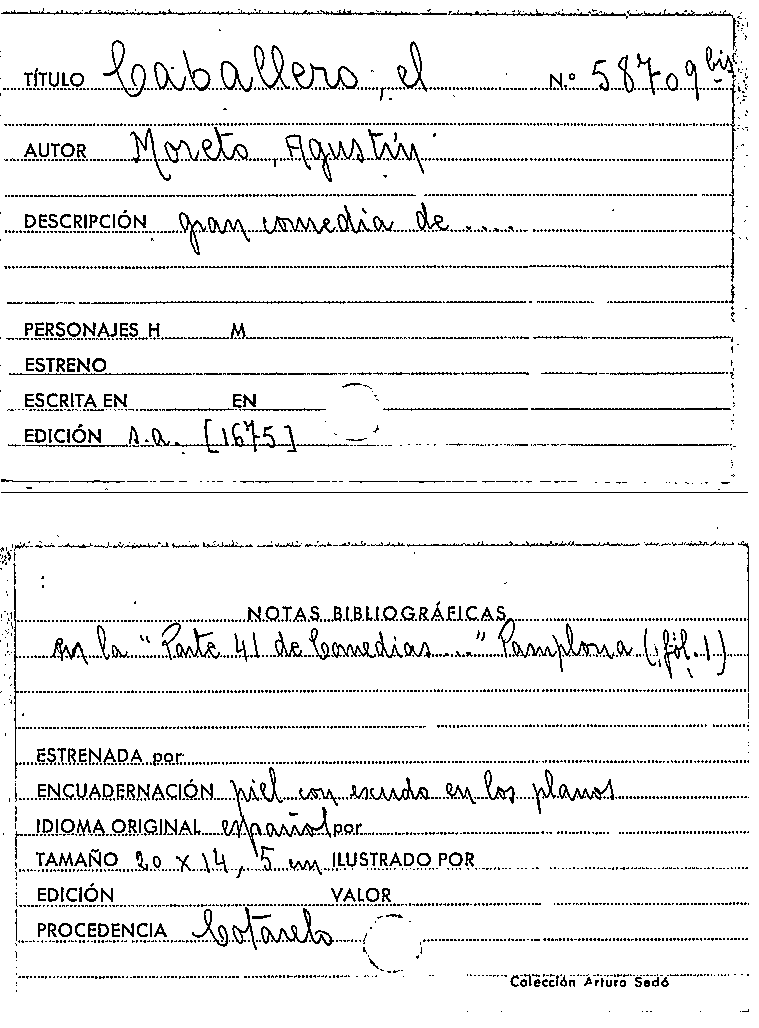 TÍTULO Caballero, el N.º 58709 bis
AUTOR Moreto, Agustín
DESCRIPCIÓN gran comedia de ....
PERSONAJES H M
ESTRENO
ESCRITA EN EN
EDICIÓN s.a. [1675]
NOTAS BIBLIOGRÁFICAS
en la "Parte 41 de Comedias ..." Pamplona (fól. 1)
ESTRENADA por
ENCUADERNACIÓN piel con escudo en los planos
IDIOMA ORIGINAL español por
TAMAÑO 20 x 14,5 cm ILUSTRADO POR
EDICIÓN VALOR
PROCEDENCIA Cotarelo
Colección Arturo Sedó